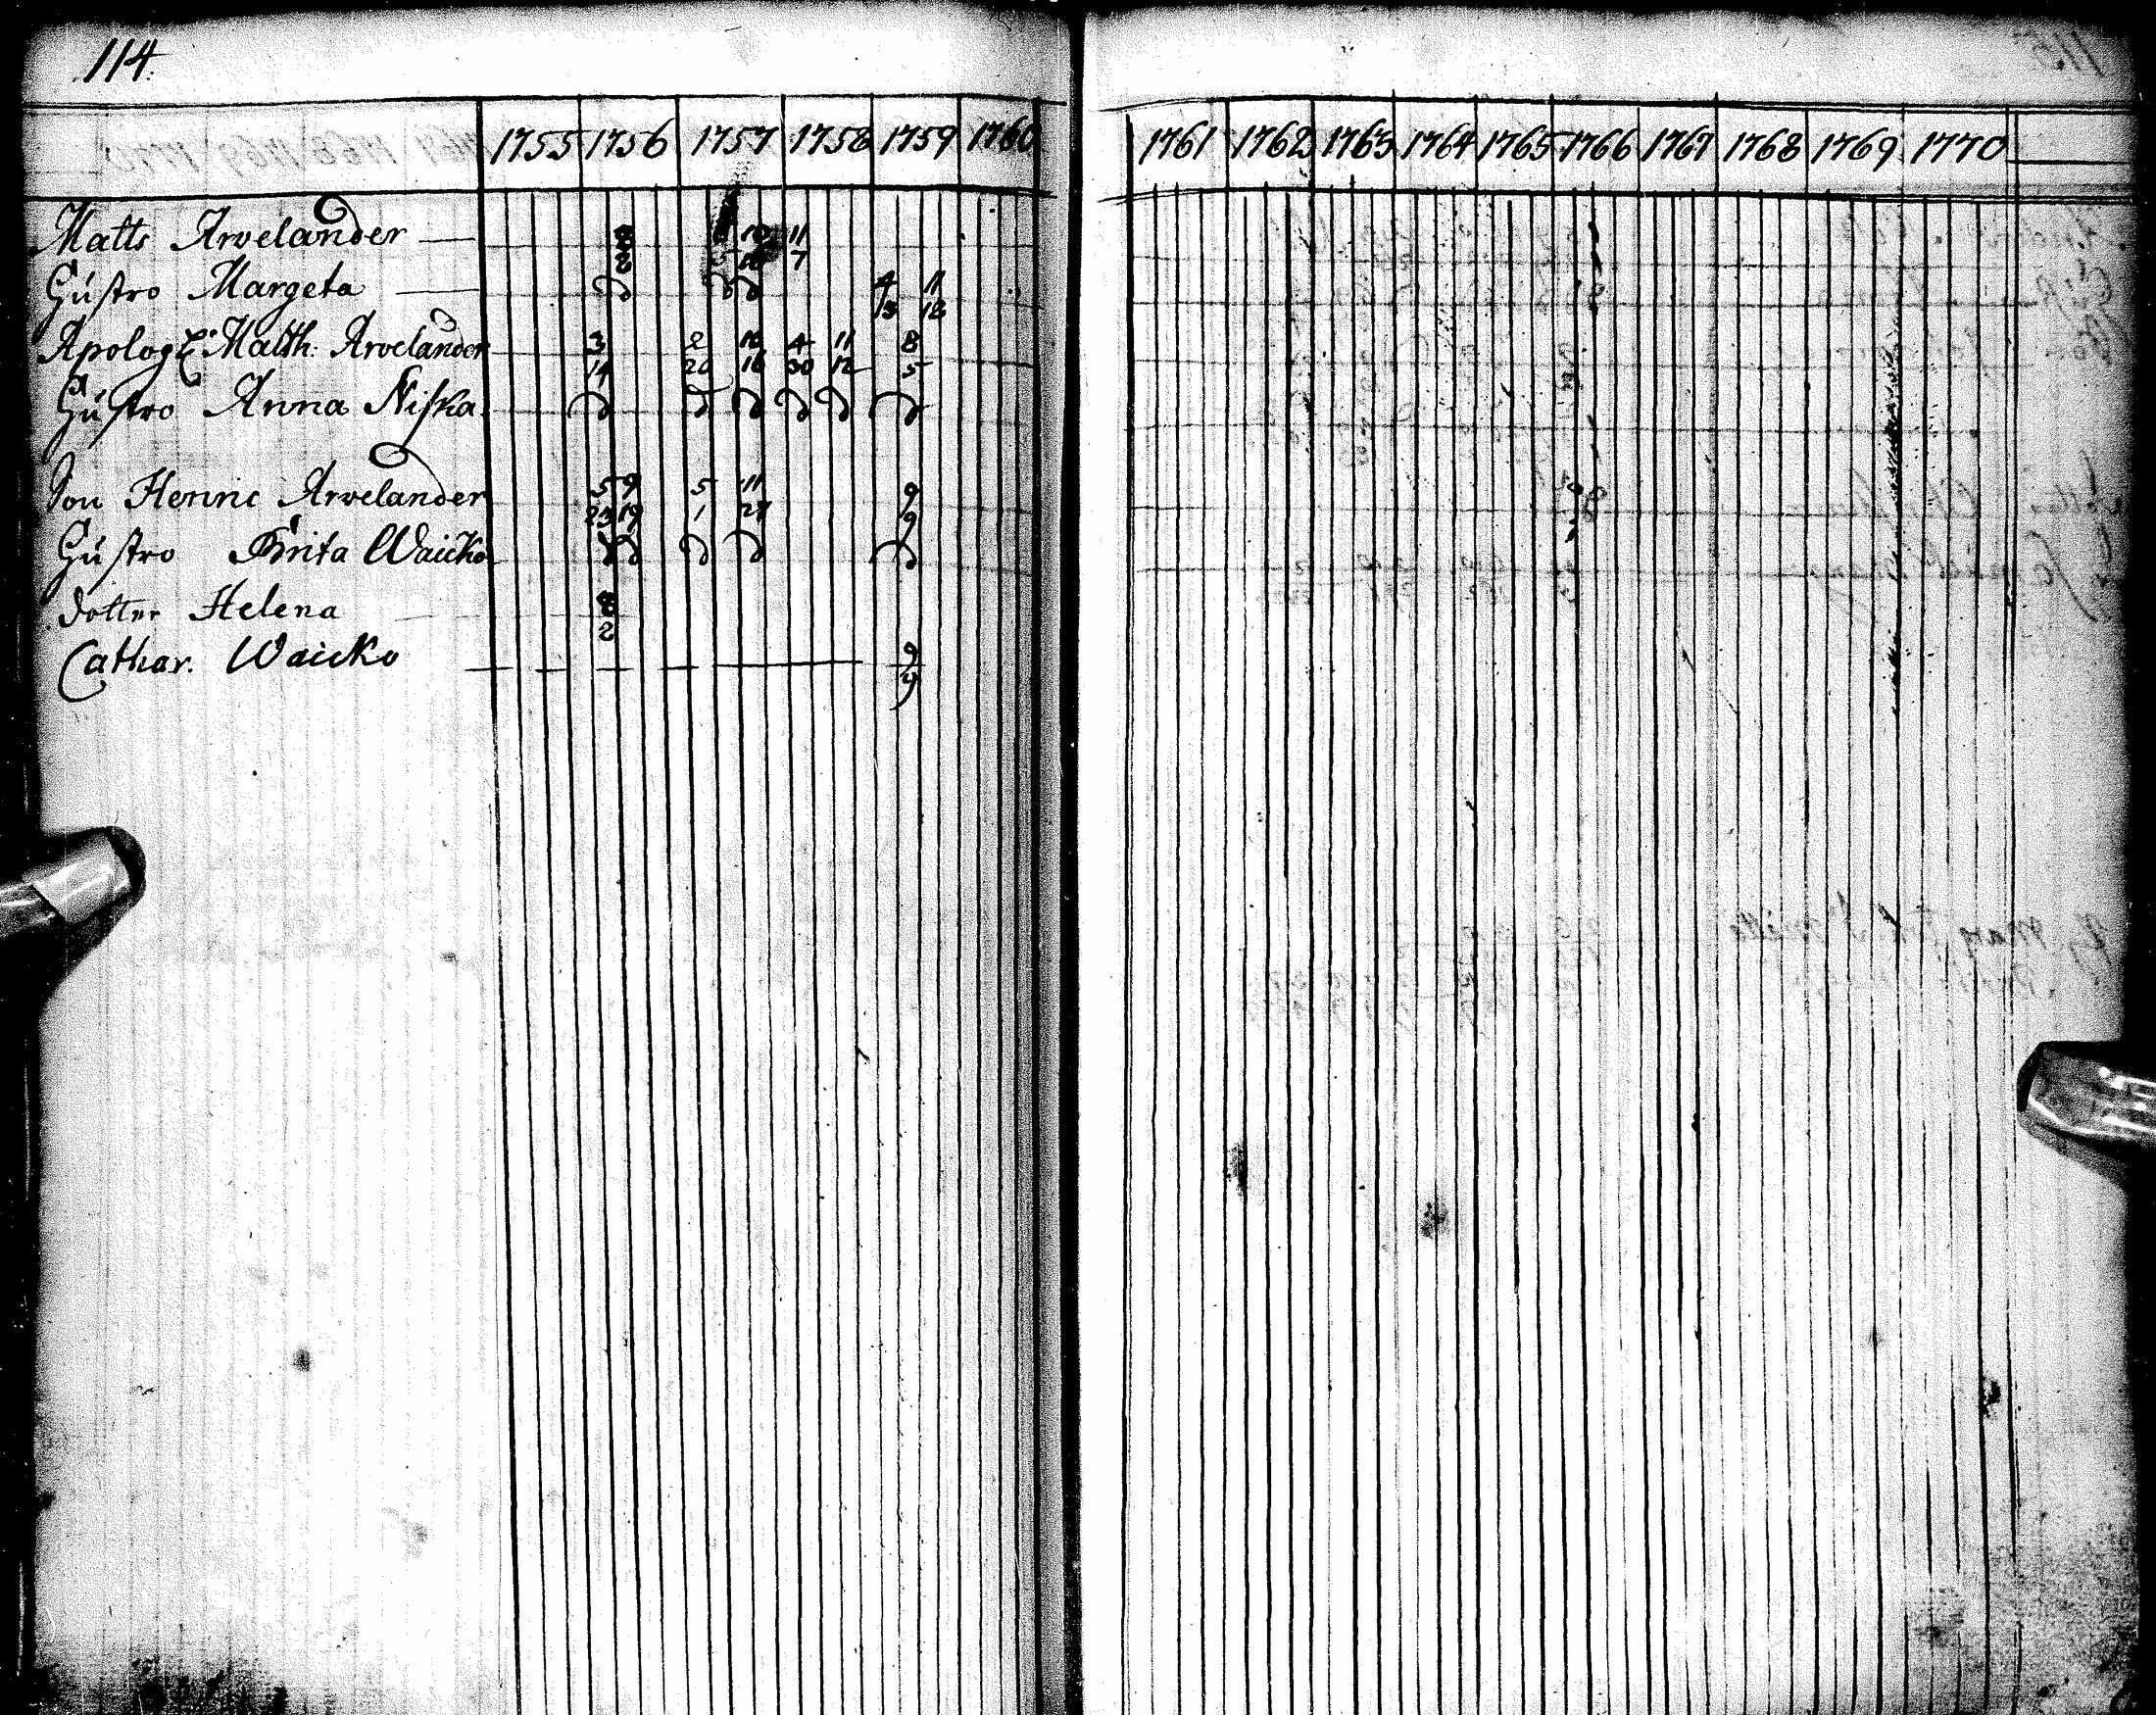 114.
1755 1756 1757 1758 1759 1760 1761 1762 1763 1764 1765 1766 1767 1768 1769 1770
Matts Arvelander 8 10 11
2 7
Hústro Margeta 4 11
13 12
Apolog E. Matth. Arvelander 3 2 10 4 11 8
14 20 16 30 12 5
Hústro Anna Niska
Son Henric Arvelander 5 9 5 11 9
23 19 1 27 9
Hústro Brita Waicko
dotter Helena 8
2
Cathar. Waicko 9
9